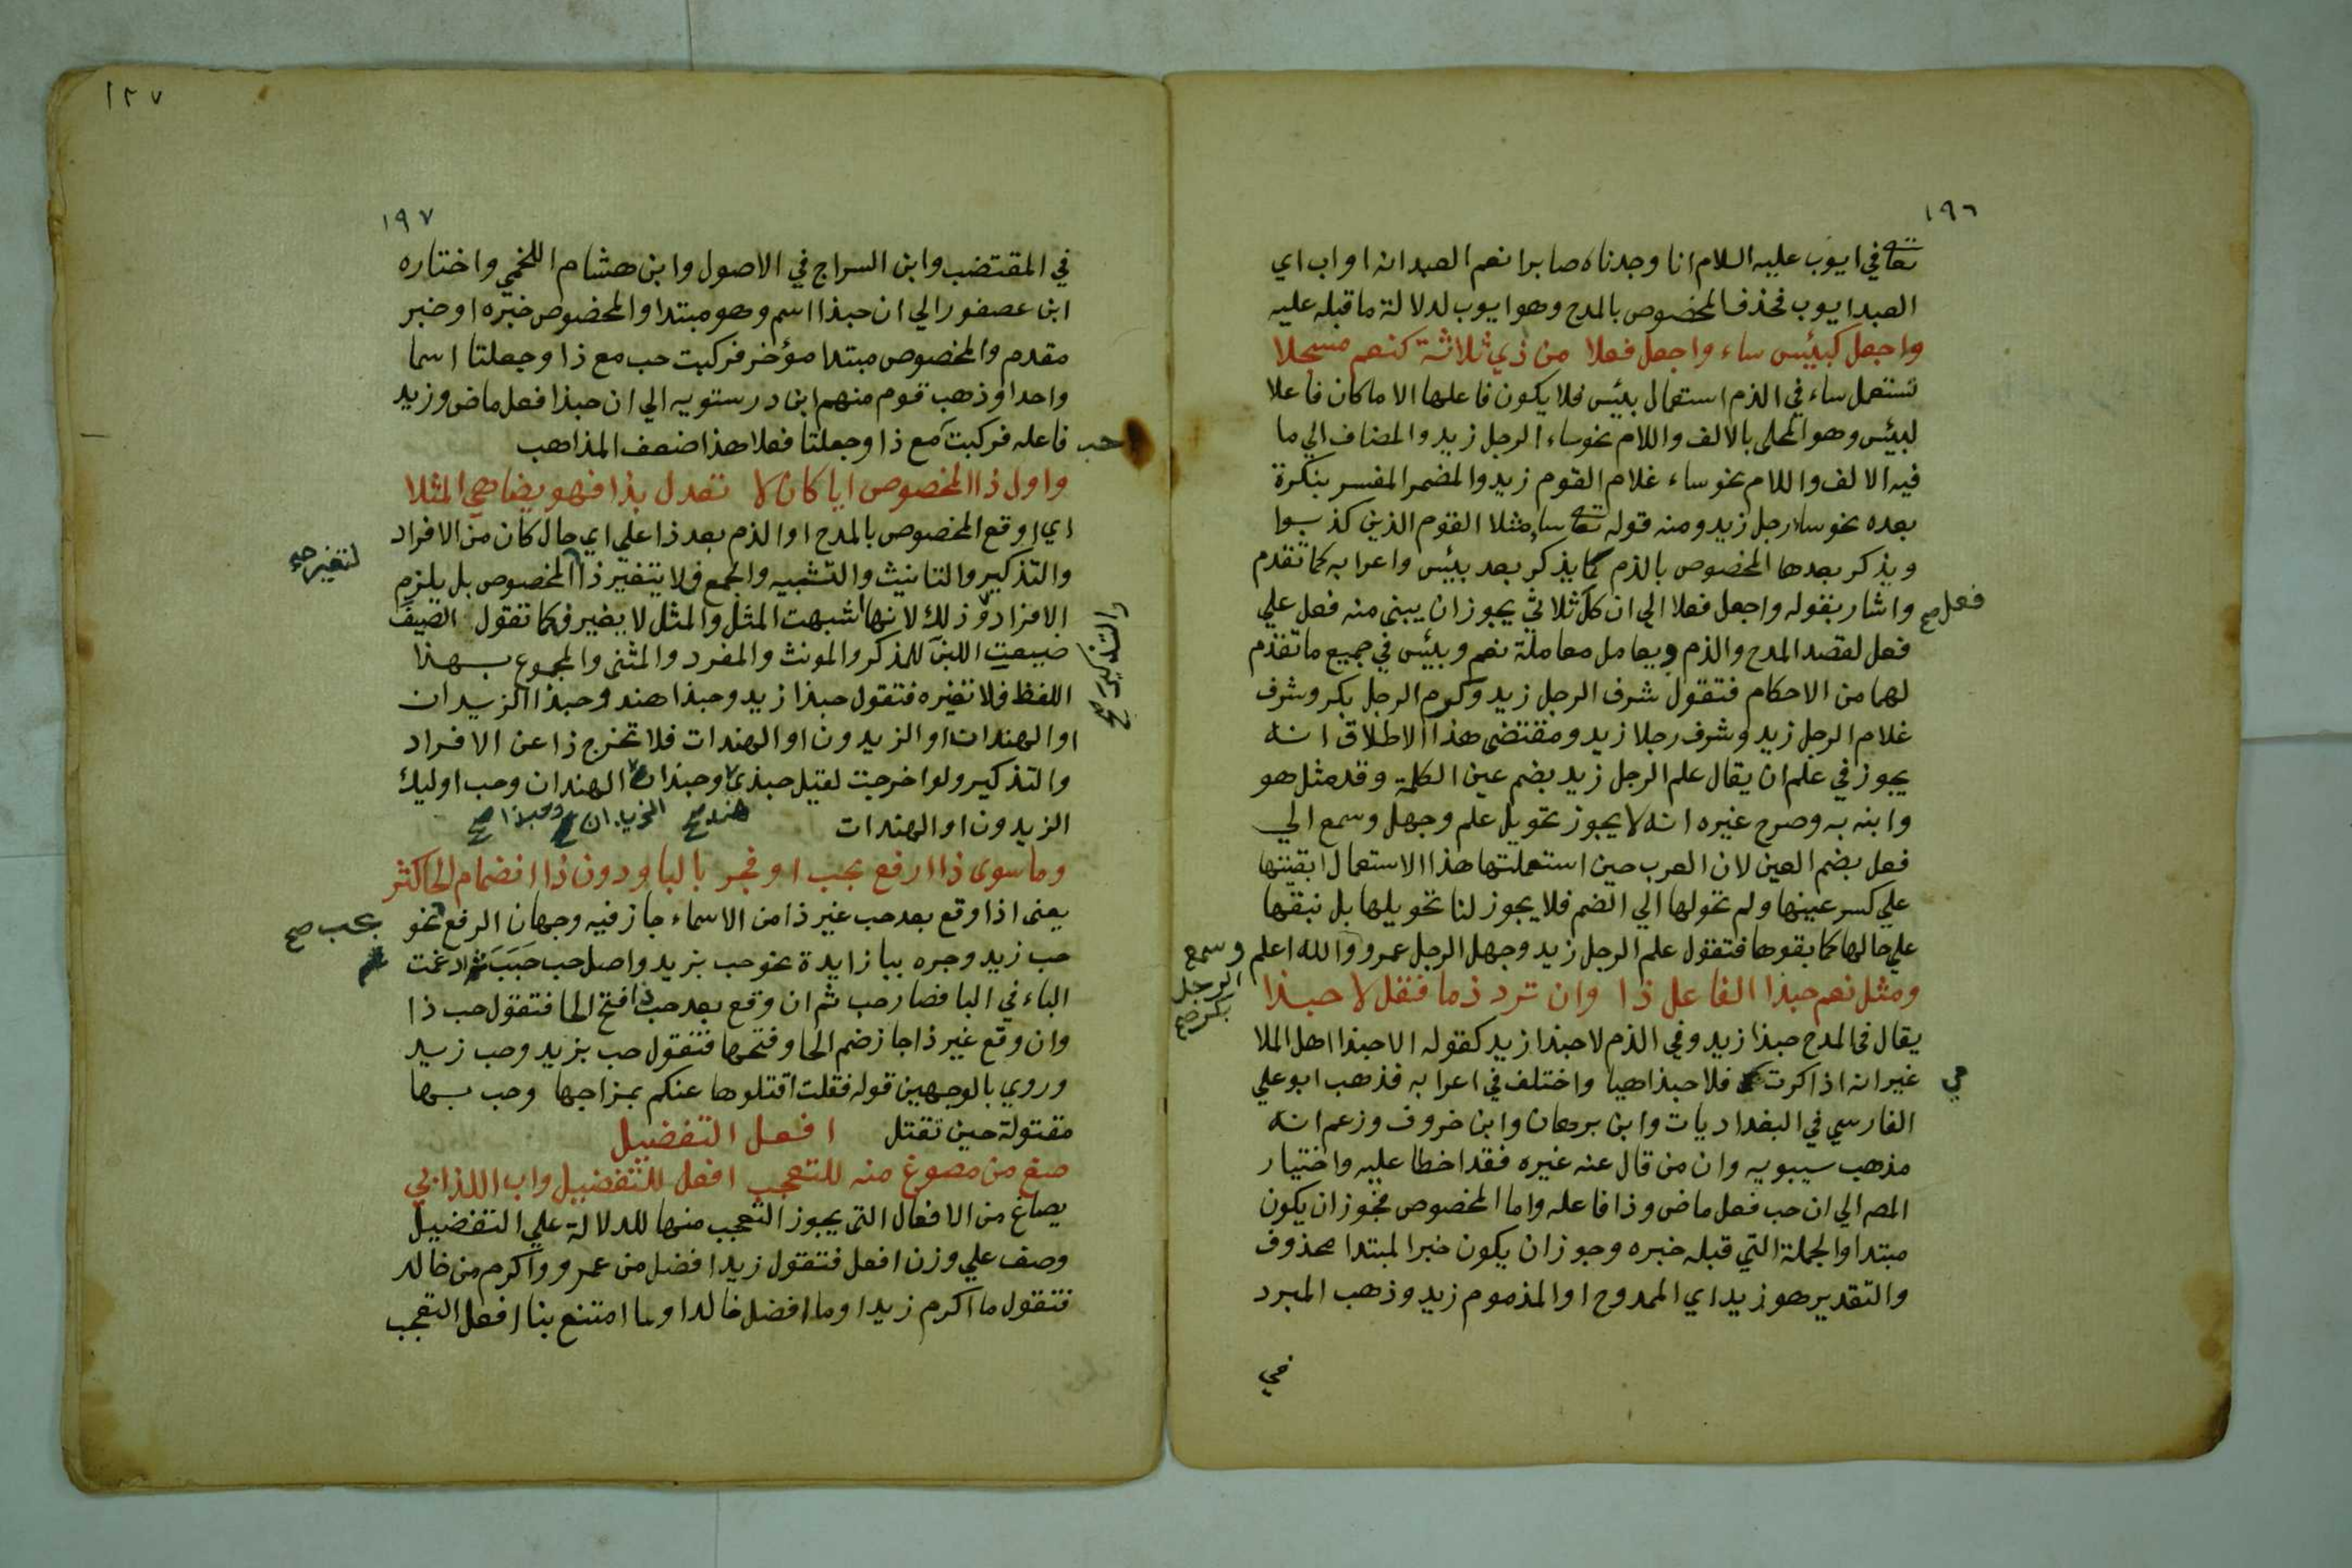 ١٩٦
تعا في ايوب عليه السلام انا وجدناه صابرا نعم العبد انه اواب اي
العبد ايوب فحذف المخصوص بالمدح وهو ايوب لدلالة ما قبله عليه
واجعل كبيئس ساء واجعل فعلا من ذي ثلاثة كنعم مسجلا
تستعمل ساء في الذم استعمال بيئس فلا يكون فاعلها الا ما كان فاعلا
لبيئس وهو المحلى بالالف واللام نحو ساء الرجل زيد والمضاف الي ما
فيه الالف واللام نحو ساء غلام القوم زيد والمضمر المفسر بنكرة
بعده نحو ساء رجل زيد ومنه قوله تعا ساء مثلا القوم الذين كذبوا
ويذكر بعدها المخصوص بالذم كما يذكر بعد بيئس واعرابه كما تقدم
واشار بقوله واجعل فعلا الي ان كل ثلاثي يجوز ان يبنى منه فعل علي
فعل صح
فعل لقصد المدح والذم ويعامل معاملة نعم وبيئس في جميع ما تقدم
لهما من الاحكام فتقول شرف الرجل زيد وكرم الرجل بكر وشرف
غلام الرجل زيد وشرف رجلا زيد ومقتضى هذا الاطلاق انه
يجوز في علم ان يقال علم الرجل زيد بضم عين الكلمة وقد مثل هو
وابنه به وصرح غيره انه لا يجوز تحويل علم وجهل وسمع الي
فعل بضم العين لان العرب حين استعملتها هذا الاستعمال ابقتها
علي كسر عينها ولم تحولها الي الضم فلا يجوز لنا تحويلها بل نبقها
علي حالها كما بقوها فتقول علم الرجل زيد وجهل الرجل عمرو والله اعلم
وسمع الرجل بكر صح
ومثل نعم حبذا الفاعل ذا وان ترد ذما فقل لا حبذا
يقال في المدح حبذا زيد وفي الذم لا حبذا زيد كقوله الا حبذا اهل الملا
غير انه اذا كرت فلا حبذا هيا واختلف في اعرابه فذهب ابو علي
مي
الفارسي في البغداديات وابن برهان وابن خروف وزعم انه
مذهب سيبويه وان من قال عنه غيره فقد اخطا عليه واختيار
المص الي ان حب فعل ماض وذا فاعله واما المخصوص فجوز ان يكون
مبتدا والجملة التي قبله خبره وجوز ان يكون خبرا لمبتدا محذوف
والتقدير هو زيد اي الممدوح او المذموم زيد وذهب المبرد
في
١٢٧
١٩٧
في المقتضب وابن السراج في الاصول وابن هشام اللخمي واختاره
ابن عصفور الي ان حبذا اسم وهو مبتدا والمخصوص خبره او خبر
مقدم والمخصوص مبتدا مؤخر فركبت حب مع ذا وجعلتا اسما
واحدا وذهب قوم منهم ابن درستويه الي ان حبذا فعل ماض وزيد
فاعله فركبت مع ذا وجعلتا فعلا هذا ضعف المذاهب
حب
واول ذا المخصوص ايا كان لا تعدل بذا فهو يضاهي المثلا
اي اوقع المخصوص بالمدح او الذم بعد ذا علي اي حال كان من الافراد
والتذكير والتانيث والتثنيه والجمع فلا يتغير ذا المخصوص بل يلزم
لتغير صح
الافراد وذلك لانها اشبهت المثل والمثل لا يغير فكما تقول الصيف
والتذكير صح
ضيعت اللبن للمذكر والمونث والمفرد والمثنى والمجموع بهذا
اللفظ فلا تغيره فتقول حبذا زيد وحبذا هند وحبذا الزيدان
او الهندات او الزيدون او الهندات فلا تخرج ذا عن الافراد
والتذكير ولو اخرجت لقيل حبذي وحبذان الهندان وحب اوليك
هند صح الزيدان صح وحبذا صح
الزيدون او الهندات
وما سوى ذا ارفع بحب او فجر بالبا ودون ذا انضمام الحا كثر
يعنى اذا وقع بعد حب غير ذا من الاسماء جاز فيه وجهان الرفع نحو
بحب صح
حب زيد وجره ببا زايدة نحو حب بزيد واصل حب حبب ثم ادغمت
الباء في البا فصار حب ثم ان وقع بعد حب ذا فتح الحا فتقول حب ذا
وان وقع غير ذا جاز ضم الحا وفتحها فتقول حب بزيد وحب زيد
وروي بالوجهين قوله فقلت اقتلوها عنكم بمزاجها وحب بها
مقتولة حين تقتل افعل التفضيل
صغ من مصوغ منه للتعجب افعل للتفضيل واب اللذ ابي
يصاغ من الافعال التي يجوز التعجب منها للدلالة علي التفضيل
وصف علي وزن افعل فتقول زيد افضل من عمرو واكرم من خالد
فتقول ما اكرم زيدا وما افضل خالدا وما امتنع بنا افعل التعجب